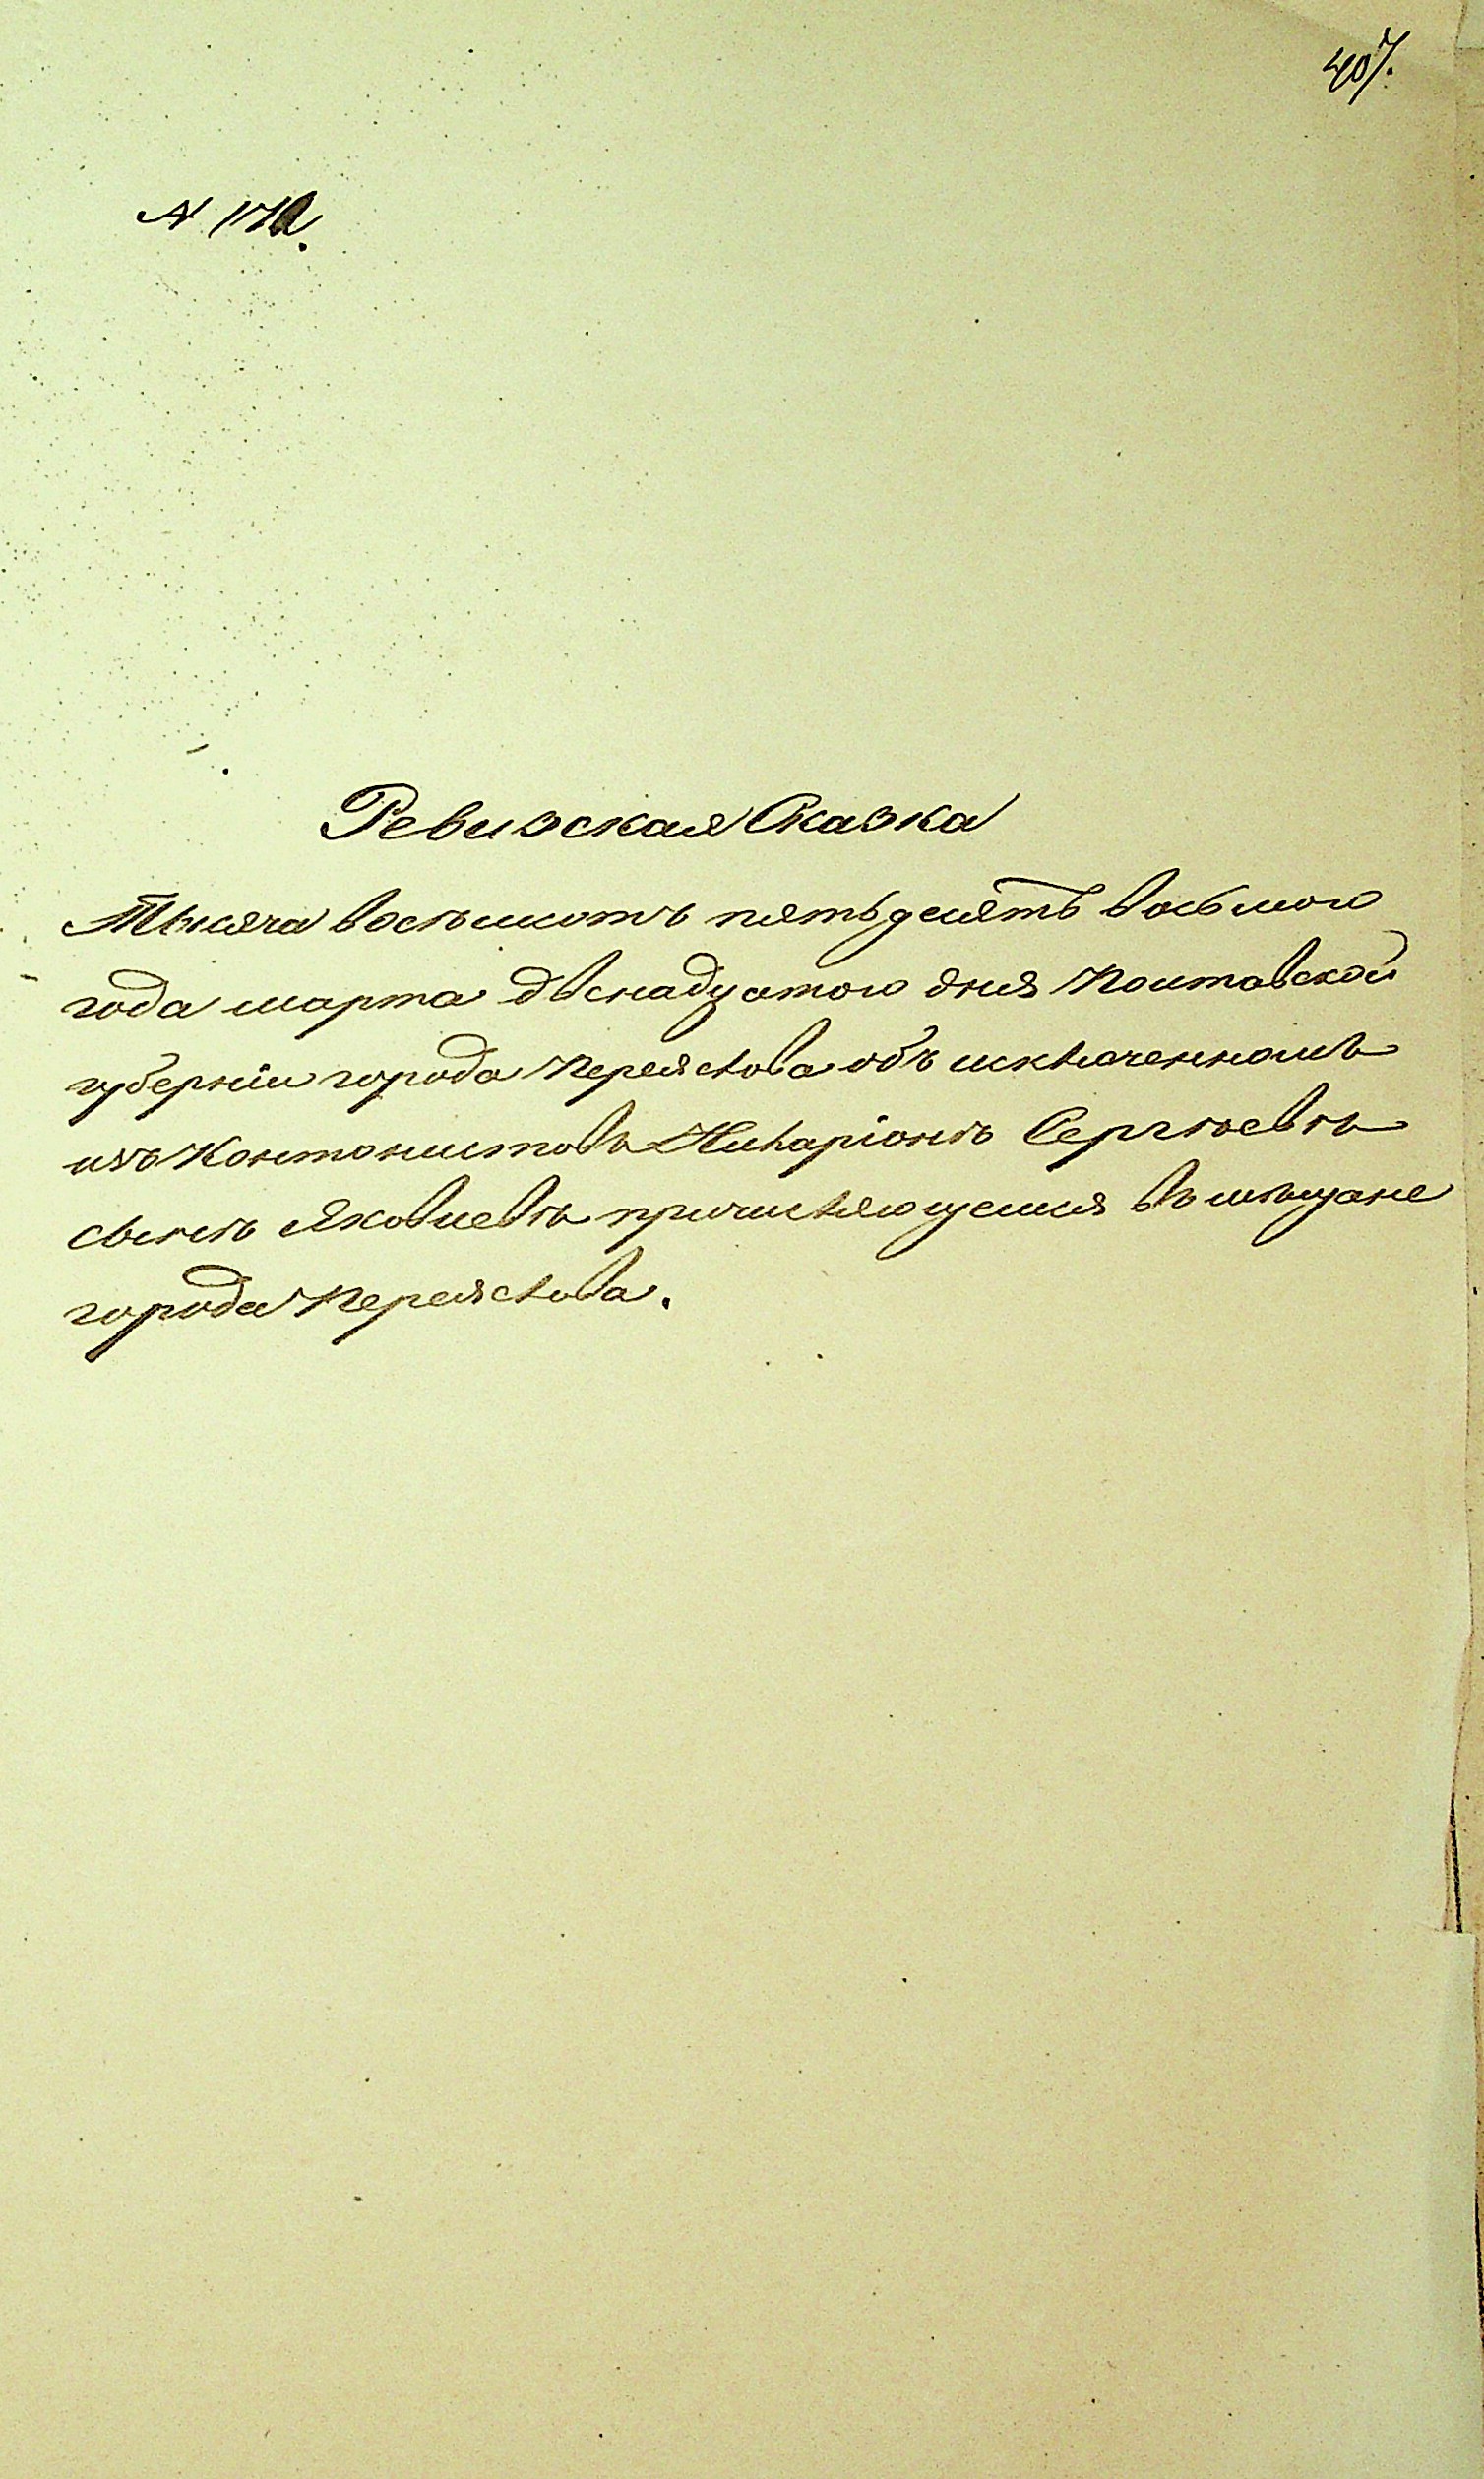 407.
N 170.
Ревизская Сказка
Тысяча восемьсотъ пятьдесятъ восьмого
года марта двенадцатого дня Полтавской
губерніи города Переяслова объ исключенномъ
изъ Контонистовъ Иларіонъ Сергѣевъ
сынъ Яковлевъ причисляющемся въ мѣщане
города Переяслова.